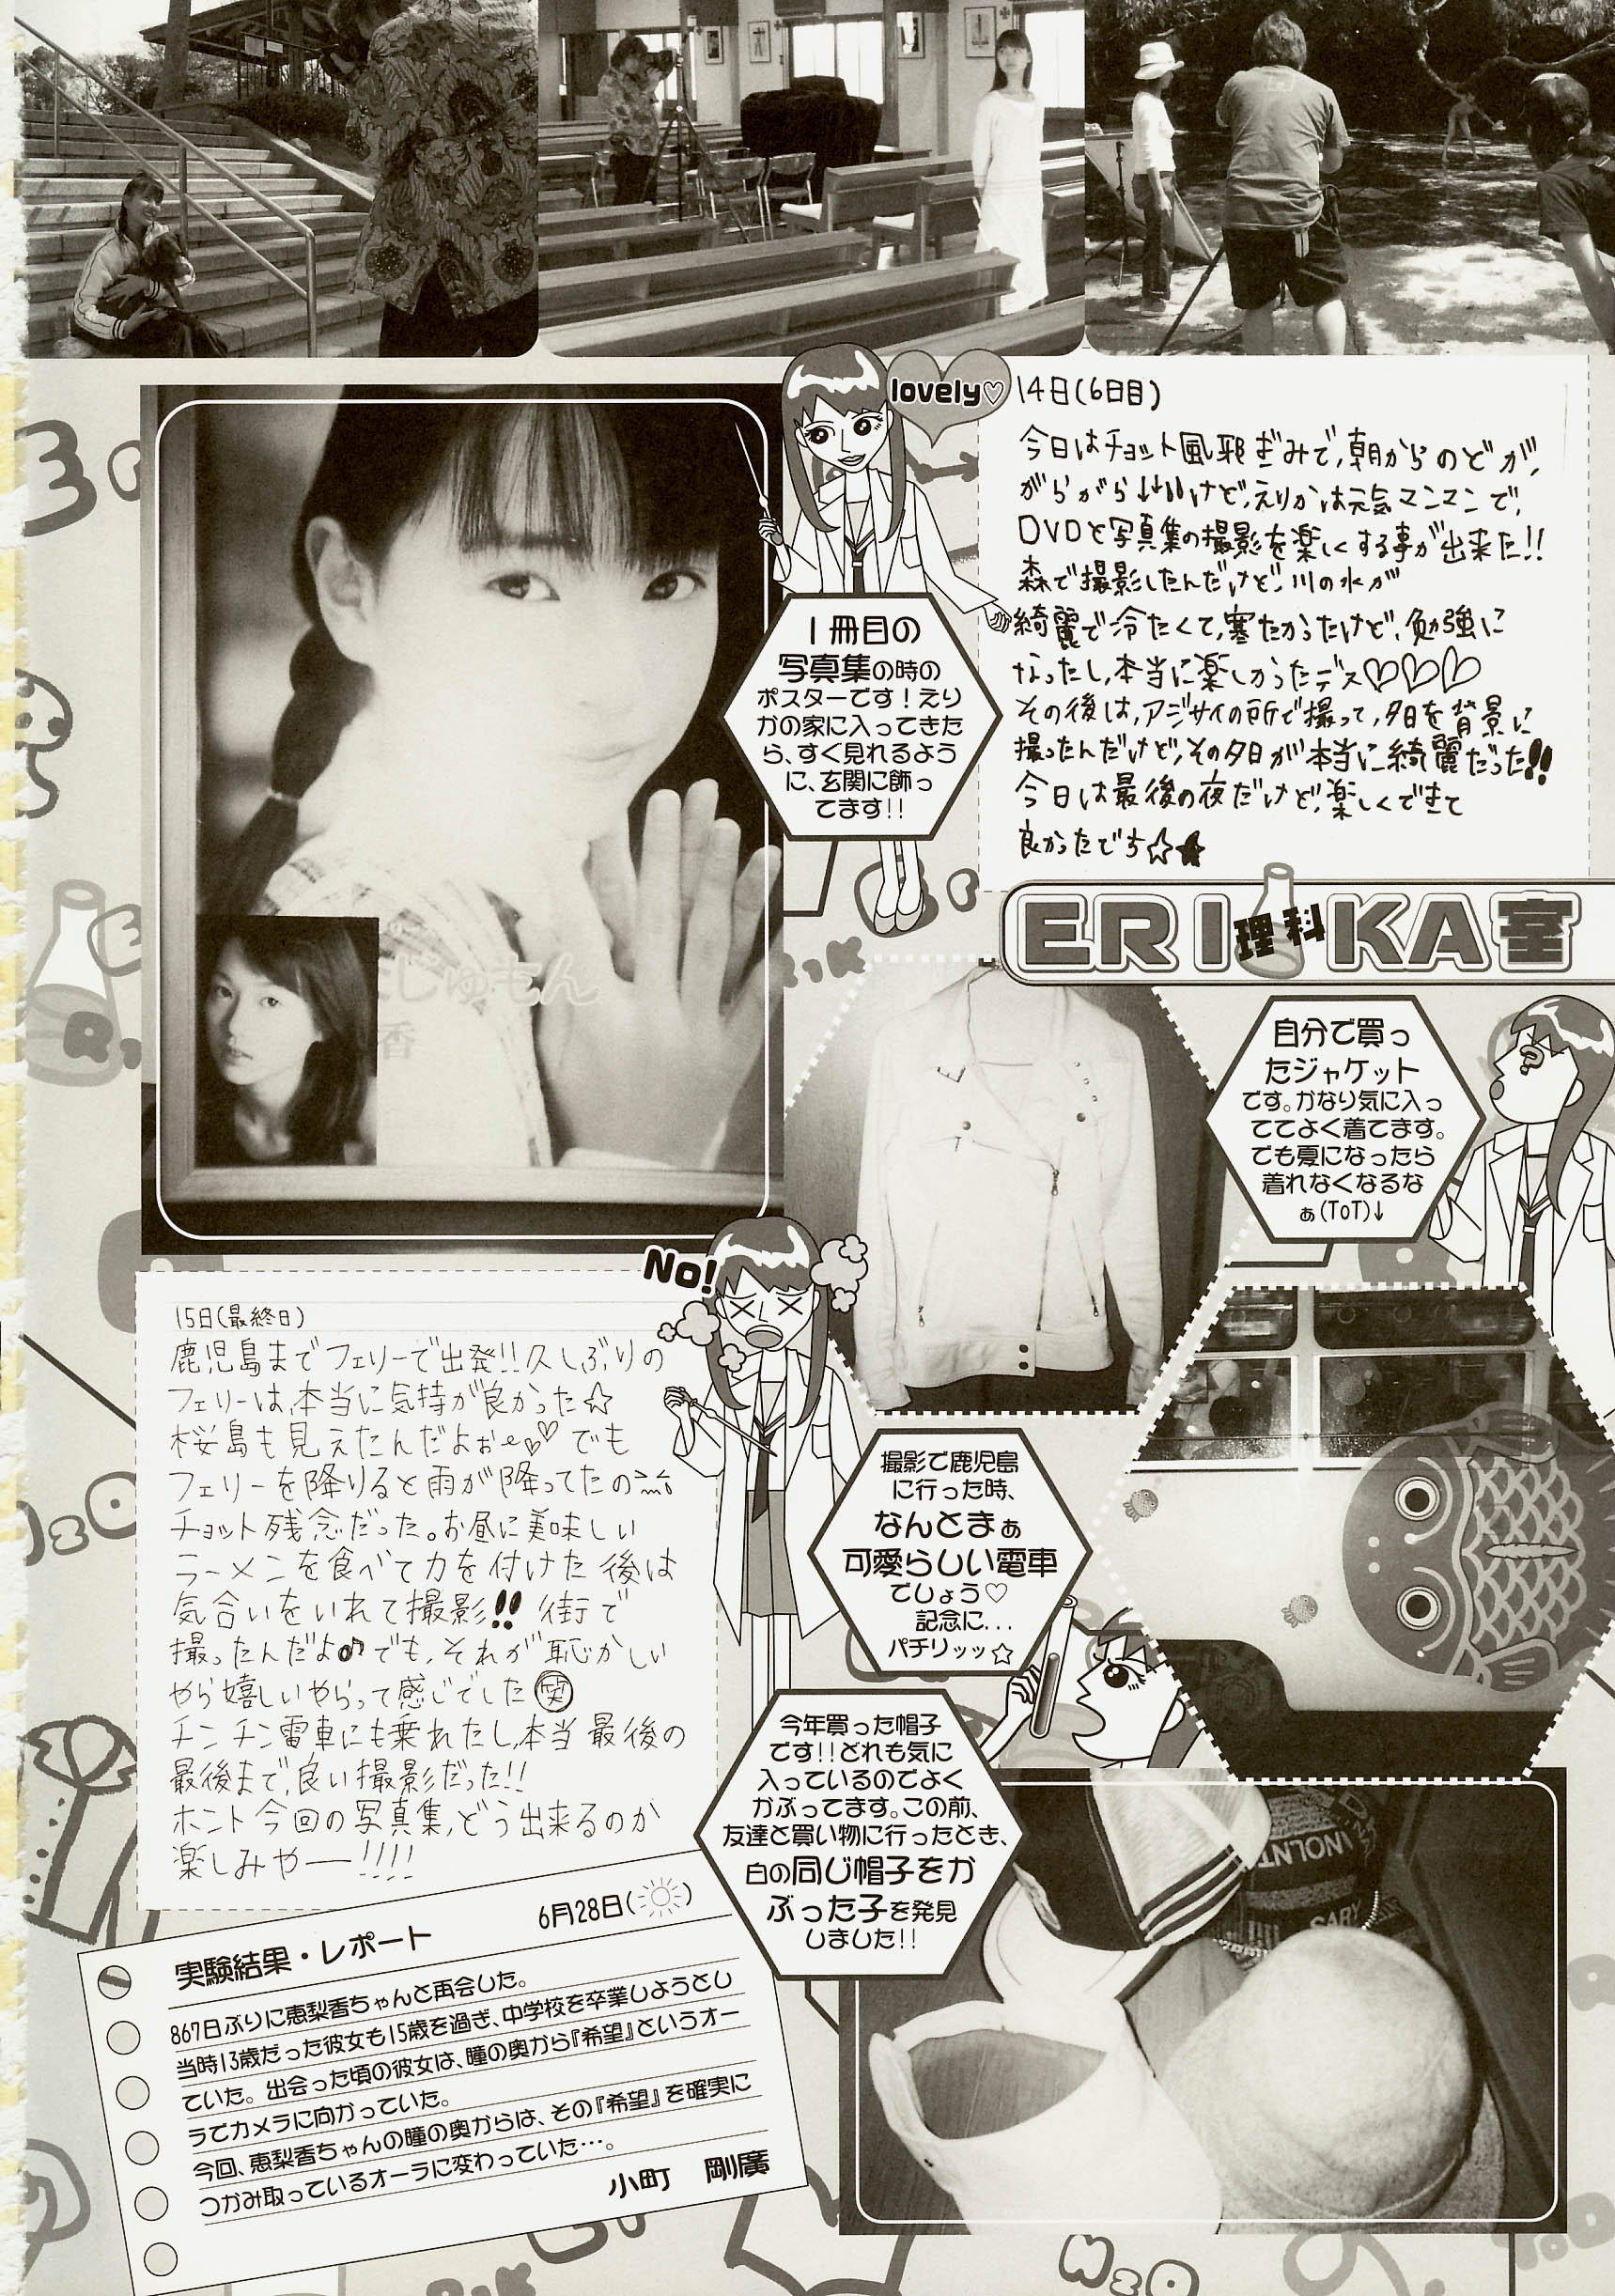 lovely♡
14日(6日目)
今日はチョット風邪ぎみで,朝からのどが,
がらがら↓↓↓けど,えりかは元気マンマンで,
DVDと写真集の撮影を楽しくする事が出来た!!
森で撮影したんだけど,川の水が
綺麗で冷たくて,寒たかったけど,勉強に
なったし,本当に楽しかったデス♡♡♡
その後は,アジサイの所で撮って,夕日を背景に
撮ったんだけど,その夕日が本当に綺麗だった!!
今日は最後の夜だけど,楽しくできて
良かったでち☆★
1冊目の
写真集の時の
ポスターです！えり
かの家に入ってきた
ら、すぐ見れるよう
に、玄関に飾っ
てます!!
じゅもん
香
ERI理科KA室
自分で買っ
たジャケット
です。かなり気に入っ
ててよく着てます。
でも夏になったら
着れなくなるな
ぁ(ToT)↓
No!
15日(最終日)
鹿児島までフェリーで出発!!久しぶりの
フェリーは,本当に気持が良かった☆
桜島も見えたんだよぉ〜♡♡でも
フェリーを降りると雨が降ってたの
チョット残念だった。お昼に美味しい
ラーメンを食べて力を付けた後は
気合いをいれて撮影!!街で
撮ったんだよ♪でも,それが恥かしい
やら嬉しいやらって感じでした㊤笑
チンチン電車にも乗れたし,本当最後の
最後まで,良い撮影だった!!
ホント今回の写真集,どう出来るのか
楽しみやー!!!!
撮影で鹿児島
に行った時、
なんとまぁ
可愛らしい電車
でしょう♡
記念に...
パチリッッ☆
今年買った帽子
です!!どれも気に
入っているのでよく
かぶってます。この前、
友達と買い物に行ったとき、
白の同じ帽子をか
ぶった子を発見
しました!!
実験結果・レポート 6月28日(☀)
867日ぶりに恵梨香ちゃんと再会した。
当時13歳だった彼女も15歳を過ぎ、中学校を卒業しようとし
ていた。出会った頃の彼女は、瞳の奥から『希望』というオー
ラでカメラに向かっていた。
今回、恵梨香ちゃんの瞳の奥からは、その『希望』を確実に
つかみ取っているオーラに変わっていた…。
小町 剛廣